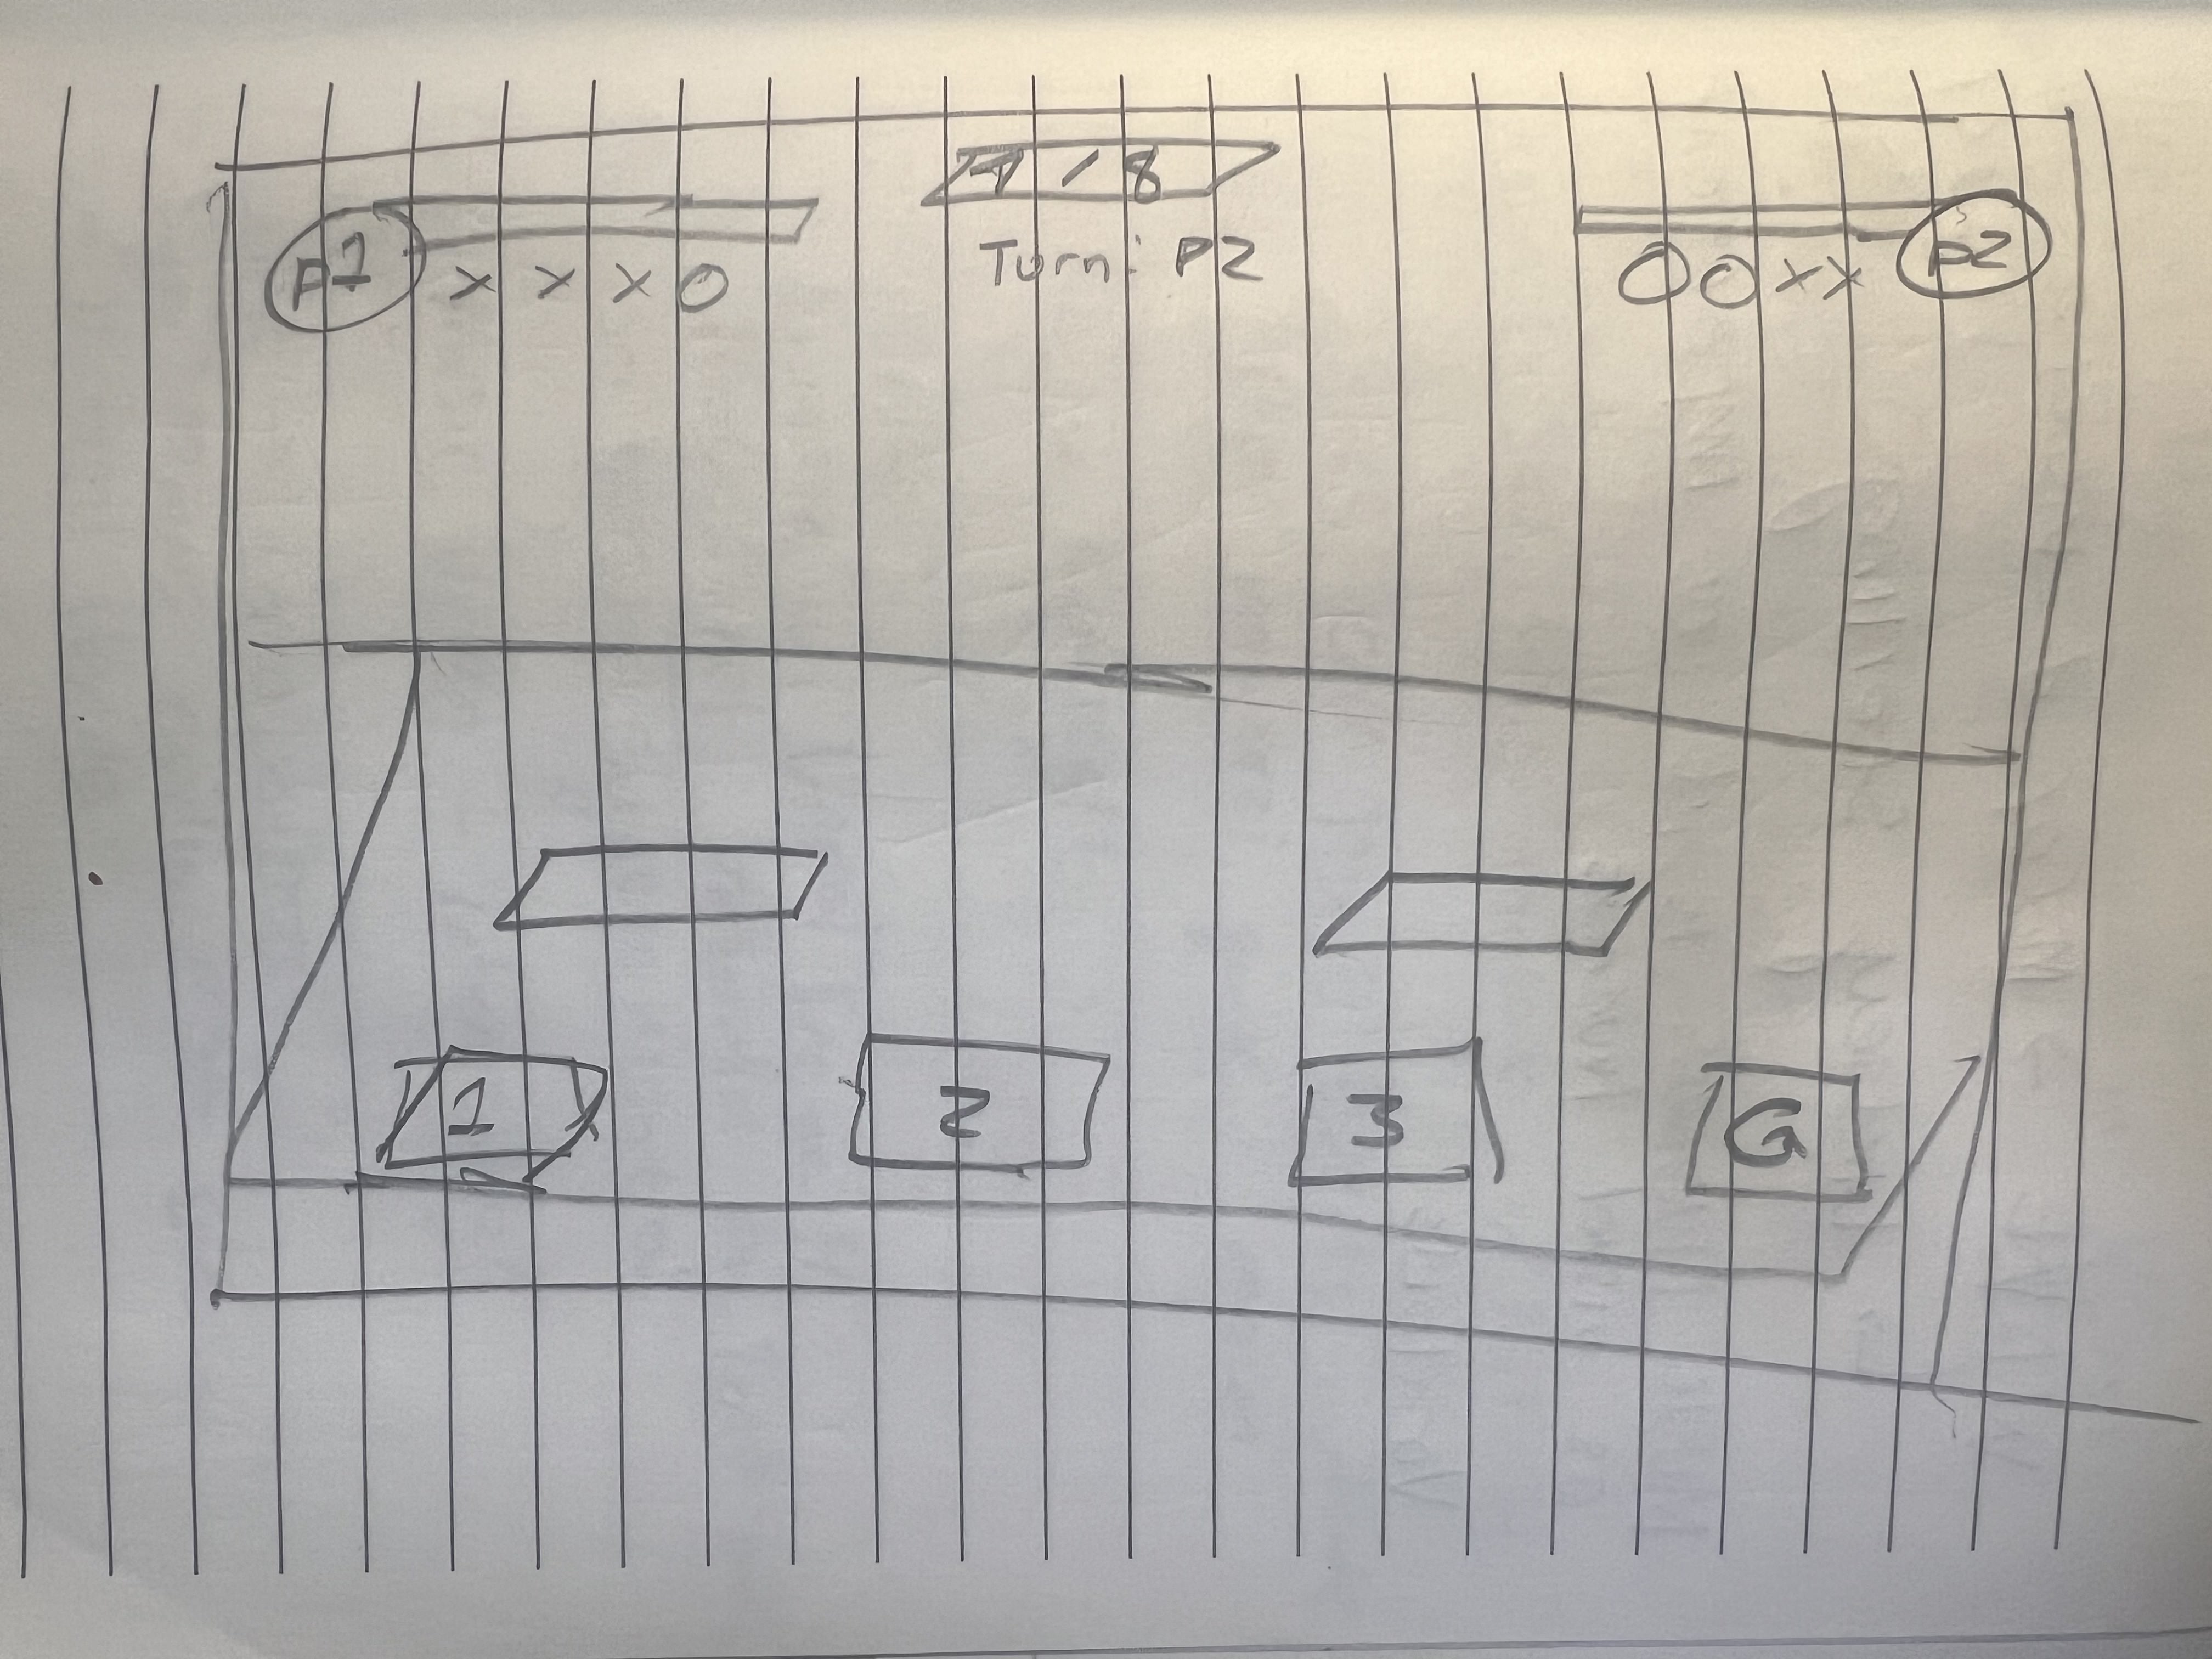 P1 x x x O
/ 8
Turn: P2
O O x x P2
1 2 3 G